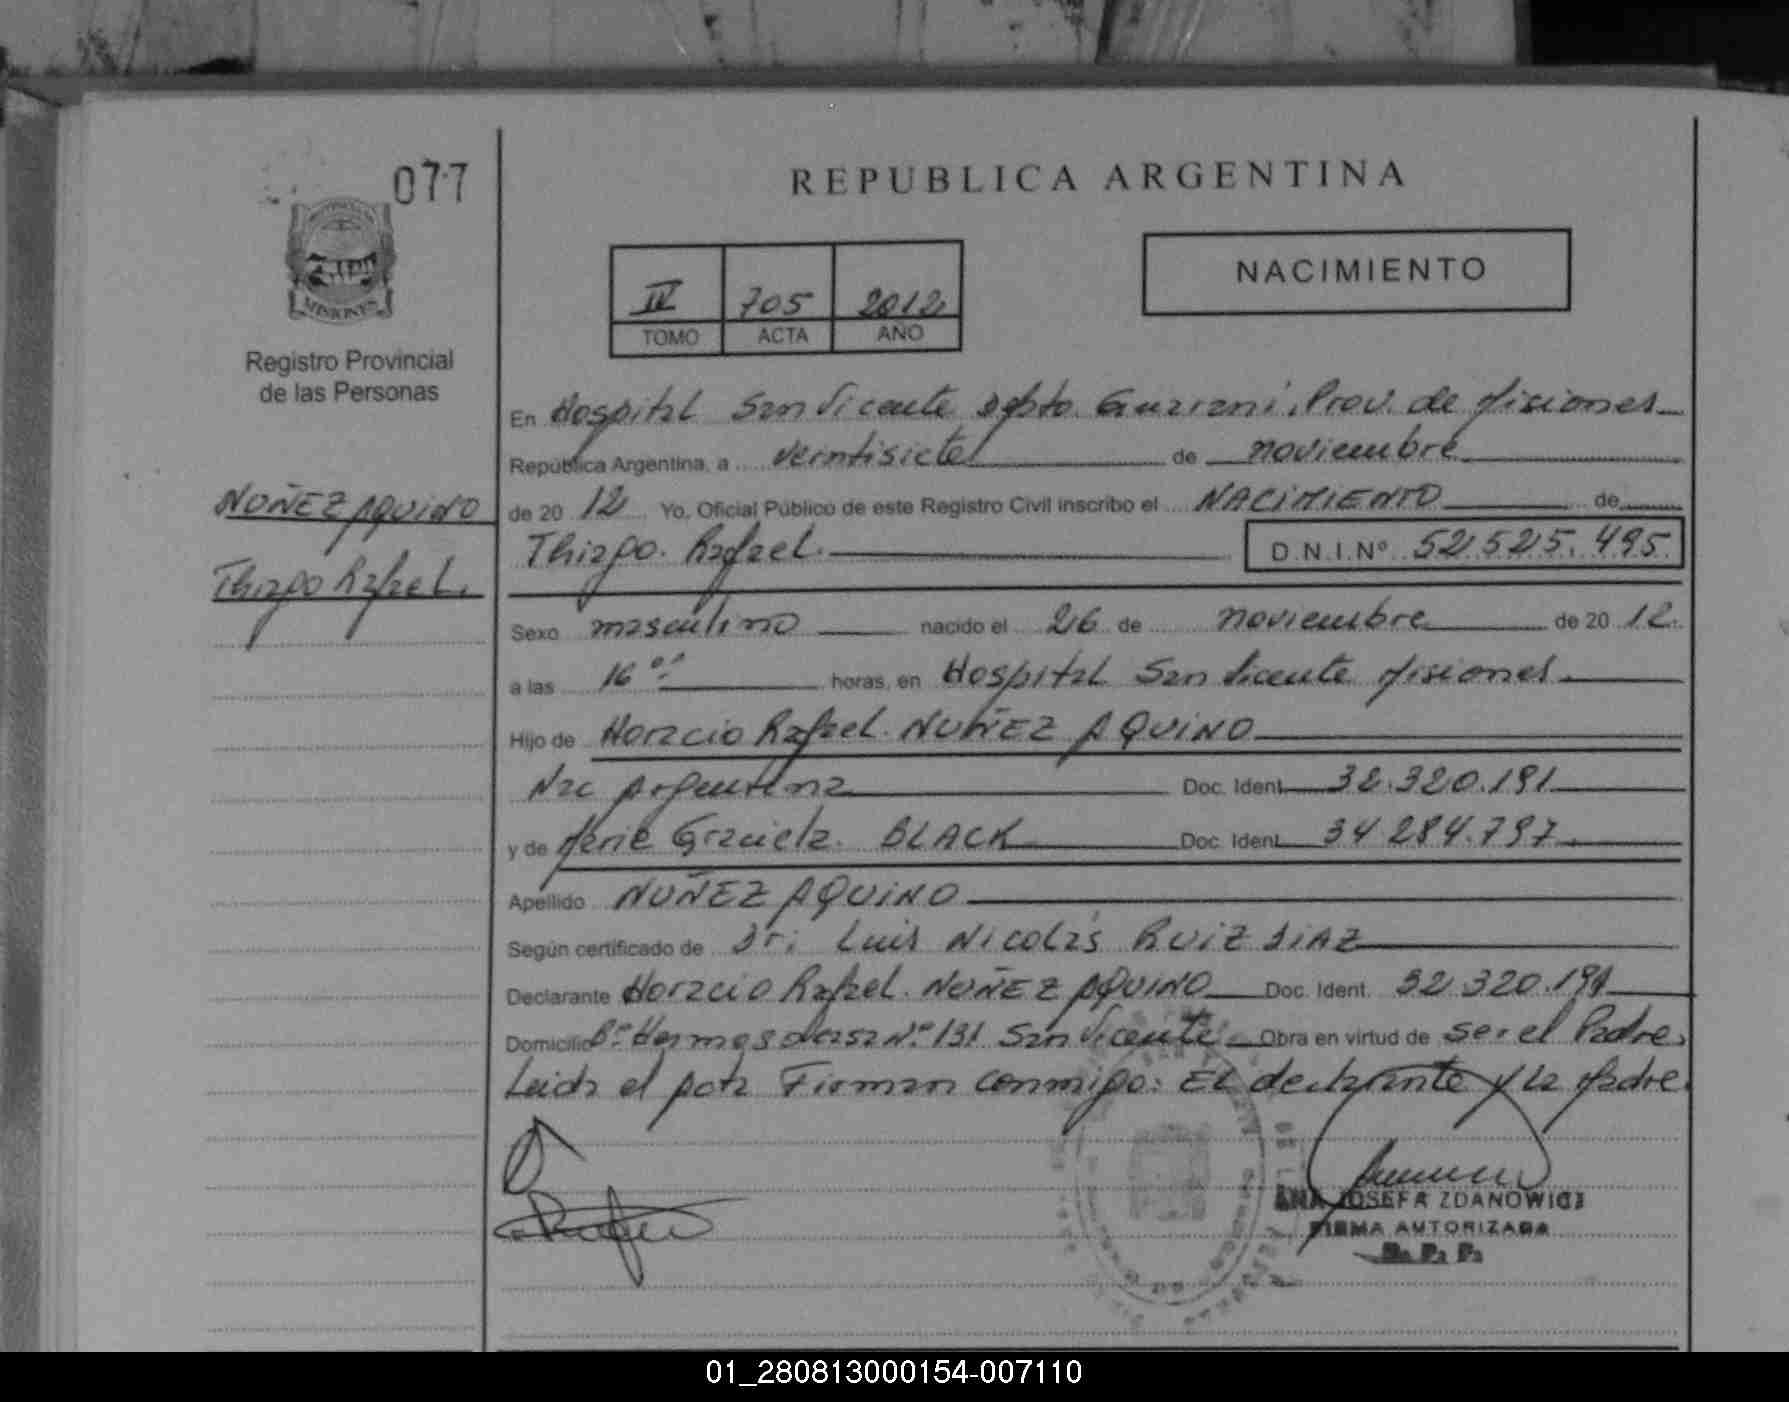 077
REPUBLICA ARGENTINA
MISIONES
Registro Provincial
de las Personas
IV 705 2012
TOMO ACTA AÑO
NACIMIENTO
En Hospital San Vicente Dpto Guaraní, Prov. de Misiones
República Argentina, a veintisiete de noviembre
NUÑEZ AQUINO
de 20 12 Yo, Oficial Público de este Registro Civil inscribo el NACIMIENTO de
Thiago Rafael.
Thiago Rafael. D.N.I.Nº 52.525.495
Sexo masculino nacido el 26 de noviembre de 20 12.
a las 16 horas, en Hospital San Vicente Misiones
Hijo de Horacio Rafael NUÑEZ AQUINO
Nac Argentina Doc. Ident. 32.320.191
y de Graciela BLACK Doc. Ident. 34 284.797
Apellido NUÑEZ AQUINO
Según certificado de Dr: Luis Nicolás RUIZ DIAZ
Declarante Horacio Rafael NUÑEZ AQUINO Doc. Ident. 32.320.191
Domicilio Bº Nº 131 San Vicente Obra en virtud de ser el Padre,
Leida el Acta Firman conmigo: El declarante y la Madre.
ANA JOSEFA ZDANOWICZ
FIRMA AUTORIZADA
01_280813000154-007110